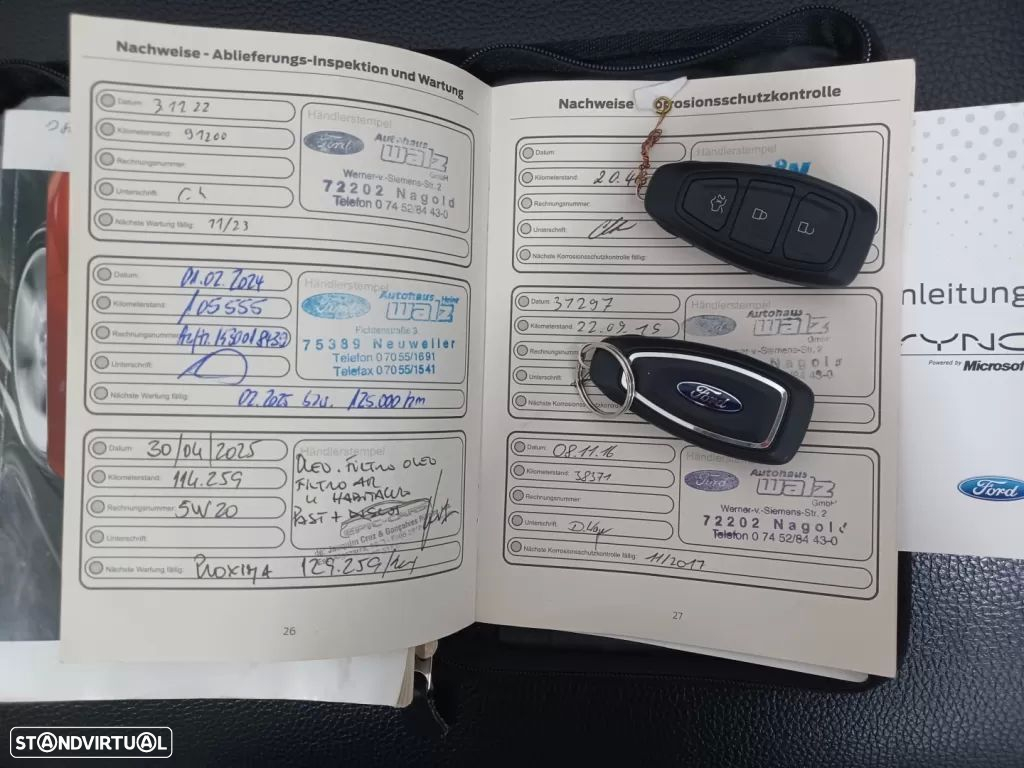 Nachweise - Ablieferungs-Inspektion und Wartung
Datum: 31 1 22
Kilometerstand: 91200
Rechnungsnummer:
Unterschrift:
Nächste Wartung fällig: 11/23
Händlerstempel
Ford Autohaus
Walz
GmbH
Werner-v.-Siemens-Str. 2
72202 Nagold
Telefon 0 74 52/84 43-0
Datum: 01.02.2024
Kilometerstand: 105555
Rechnungsnummer:
Unterschrift:
Nächste Wartung fällig: 02.2025 bzw. 125.000 km
Händlerstempel
Ford Autohaus Heinz
Walz
Fichtenstraße 3
75389 Neuweiler
Telefon 07055/1691
Telefax 07055/1541
Datum: 30/04/2025
Kilometerstand: 114.259
Rechnungsnummer: 5W20
Unterschrift:
Nächste Wartung fällig: PROXIMA 129.259/km
Händlerstempel
OLEO + FILTRO OLEO
FILTRO AR
HABITACULO
PAST + DISCOS
Joaquim Cruz & Gonçalves
26
Nachweise - Korrosionsschutzkontrolle
Datum:
Kilometerstand:
Rechnungsnummer:
Unterschrift:
Nächste Korrosionsschutzkontrolle fällig:
Händlerstempel
Datum: 31297
Kilometerstand: 22.09.15
Rechnungsnummer
Unterschrift:
Nächste Korrosions
Händlerstempel
Autohaus
Walz
GmbH
v.-Siemens-Str. 2
Nagold
43-0
Ford
Datum: 08.11.16
Kilometerstand: 38371
Rechnungsnummer:
Unterschrift:
Nächste Korrosionsschutzkontrolle fällig: 11/2017
Händlerstempel
Ford Autohaus
Walz
GmbH
Werner-v.-Siemens-Str. 2
72202 Nagold
Telefon 0 74 52/84 43-0
27
nleitung
SYNC
Powered by Microsoft
Ford
STANDVIRTUAL